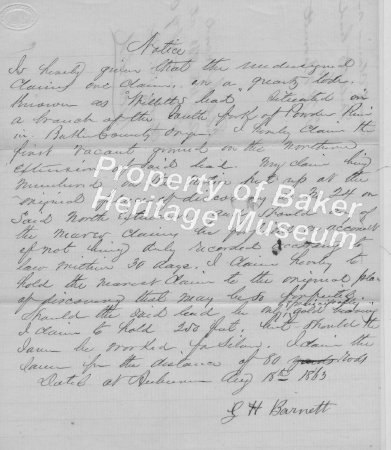 Notice
Is hereby given that the undersigned
Claims one claim on a quartz lode
known as Willetts lead situated in
a branch of the South fork of Powder River
in Baker County Oregon. I hereby claim the
first vacant ground on the Northern
extension of said lead My claim being
Numbered on the notice put up at the
original place of discovery No 24 on
said North extension and should any of
the nearer claims be on account
of not being duly recorded according to
law within 30 days. I claim hereby to
hold the nearest claim to the original place
of discovery that may be so forfeited
Should the said lead be only gold bearing
I claim to hold 200 feet, but should the
same be worked for Silver. I claim the
same for the distance of 80 yards Rods
Dated at Auburn Aug 18th 1863
G H Barnett
Property of Baker
Heritage Museum